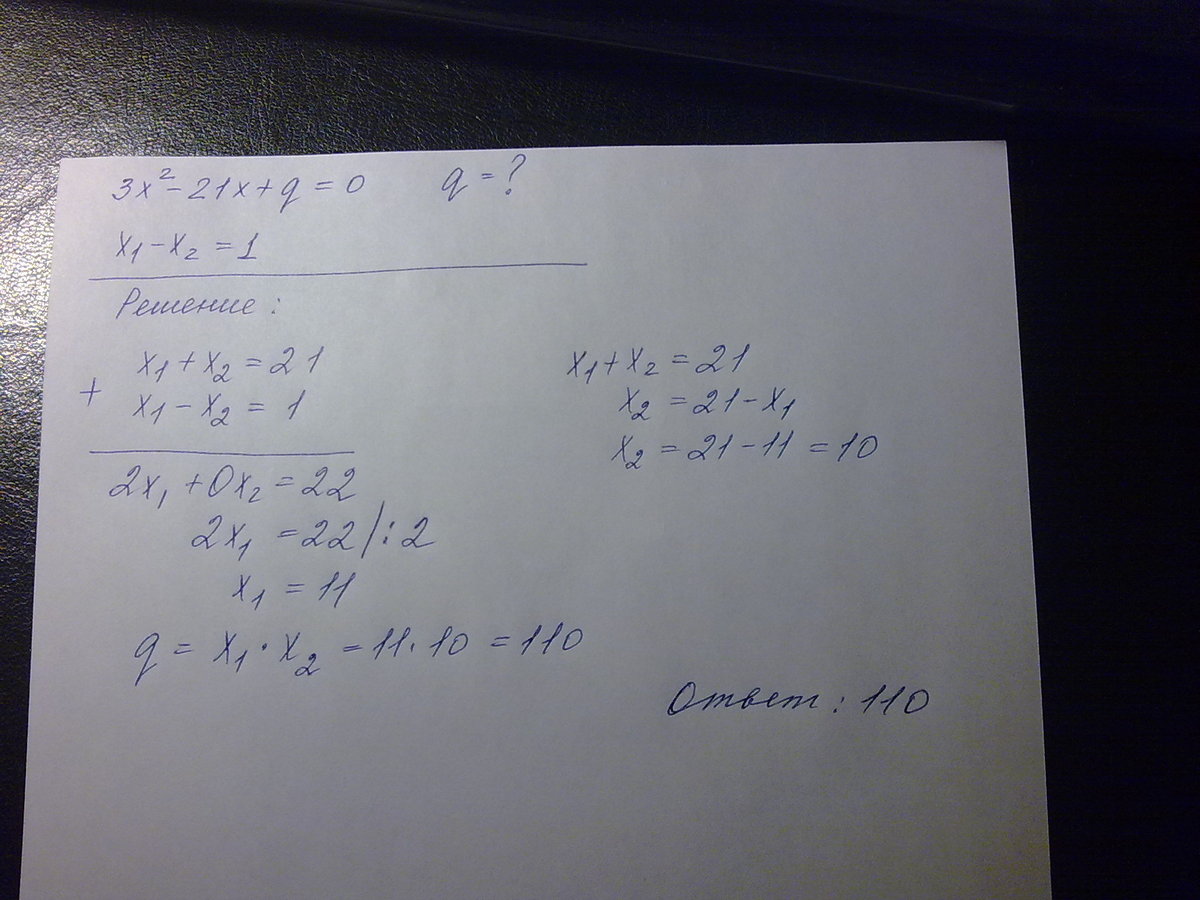 3x² - 21x + q = 0 q = ?
x₁ - x₂ = 1
Решение:
x₁ + x₂ = 21
+
x₁ - x₂ = 1
2x₁ + 0x₂ = 22
2x₁ = 22 /:2
x₁ = 11
x₁ + x₂ = 21
x₂ = 21 - x₁
x₂ = 21 - 11 = 10
q = x₁ · x₂ = 11 · 10 = 110
Ответ: 110